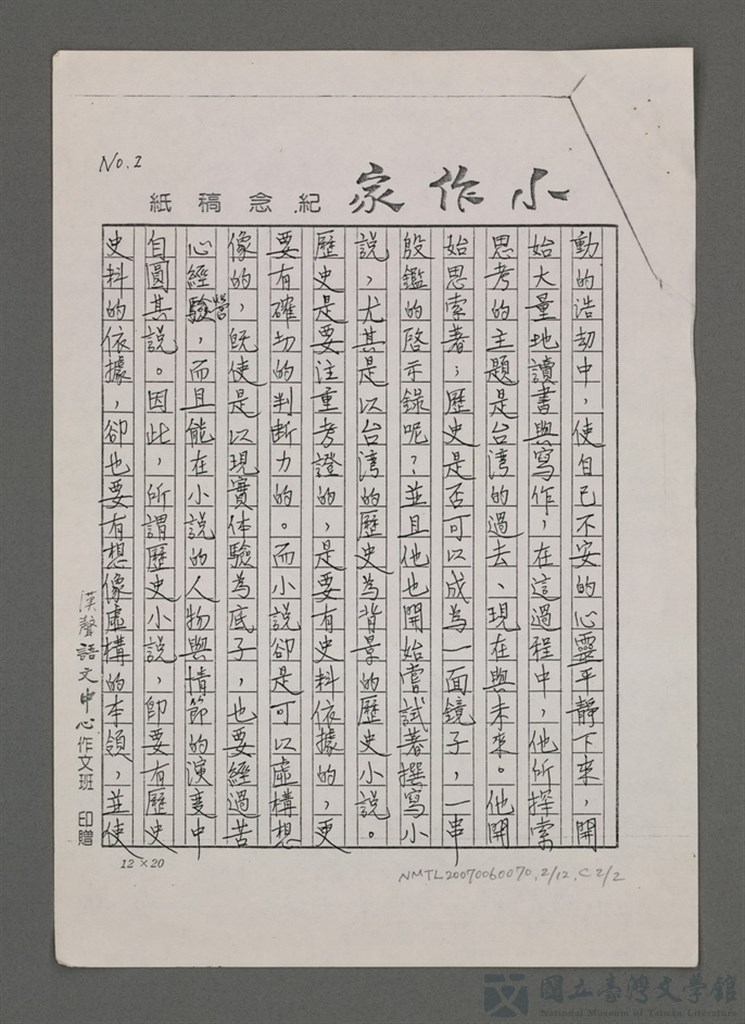 No.2
小作家 紀念稿紙
動的浩劫中，使自己不安的心靈平靜下來，開
始大量地讀書與寫作，在這過程中，他所探索
思考的主題是台湾的過去、現在與未來。他開
始思索著；歷史是否可以成為一面鏡子，一串
殷鑑的啓示錄呢？並且他也開始嘗試著撰寫小
說，尤其是以台湾的歷史為背景的歷史小說。
歷史是要注重考證的，是要有史料依據的，更
要有確切的判断力的。而小說卻是可以虛構想
像的，既使是以現實体驗為底子，也要經過苦
心經營，而且能在小說的人物與情節的演变中
自圓其說。因此，所謂歷史小說，卽要有歷史
史料的依據，卻也要有想像虛構的本領，並使
漢聲語文中心作文班 印贈
12×20
NMTL20070060070,2/12,C2/2
國立臺灣文學館
National Museum of Taiwan Literature